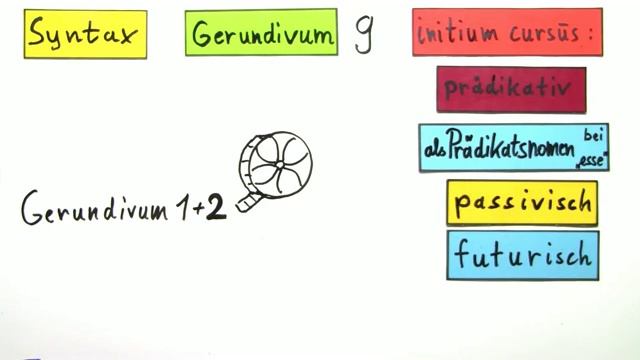 Syntax
Gerundivum g
initium cursūs:
prädikativ
als Prädikatsnomen bei „esse“
passivisch
futurisch
Gerundivum 1+2